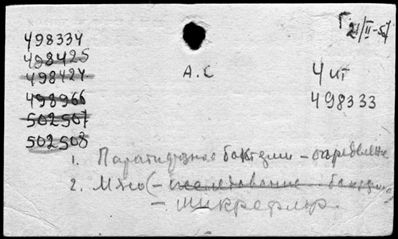 498334
498425
498424
498966
502507
502508
А.С
Г 21/II-57
Чит
498333
1. Паратифозные бактерии – определение
2. Мясо (– исследование – бактер
– микрофлор.